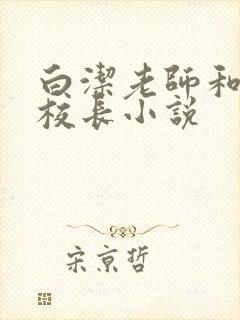 白潔老師和
校長小説
宋京哲